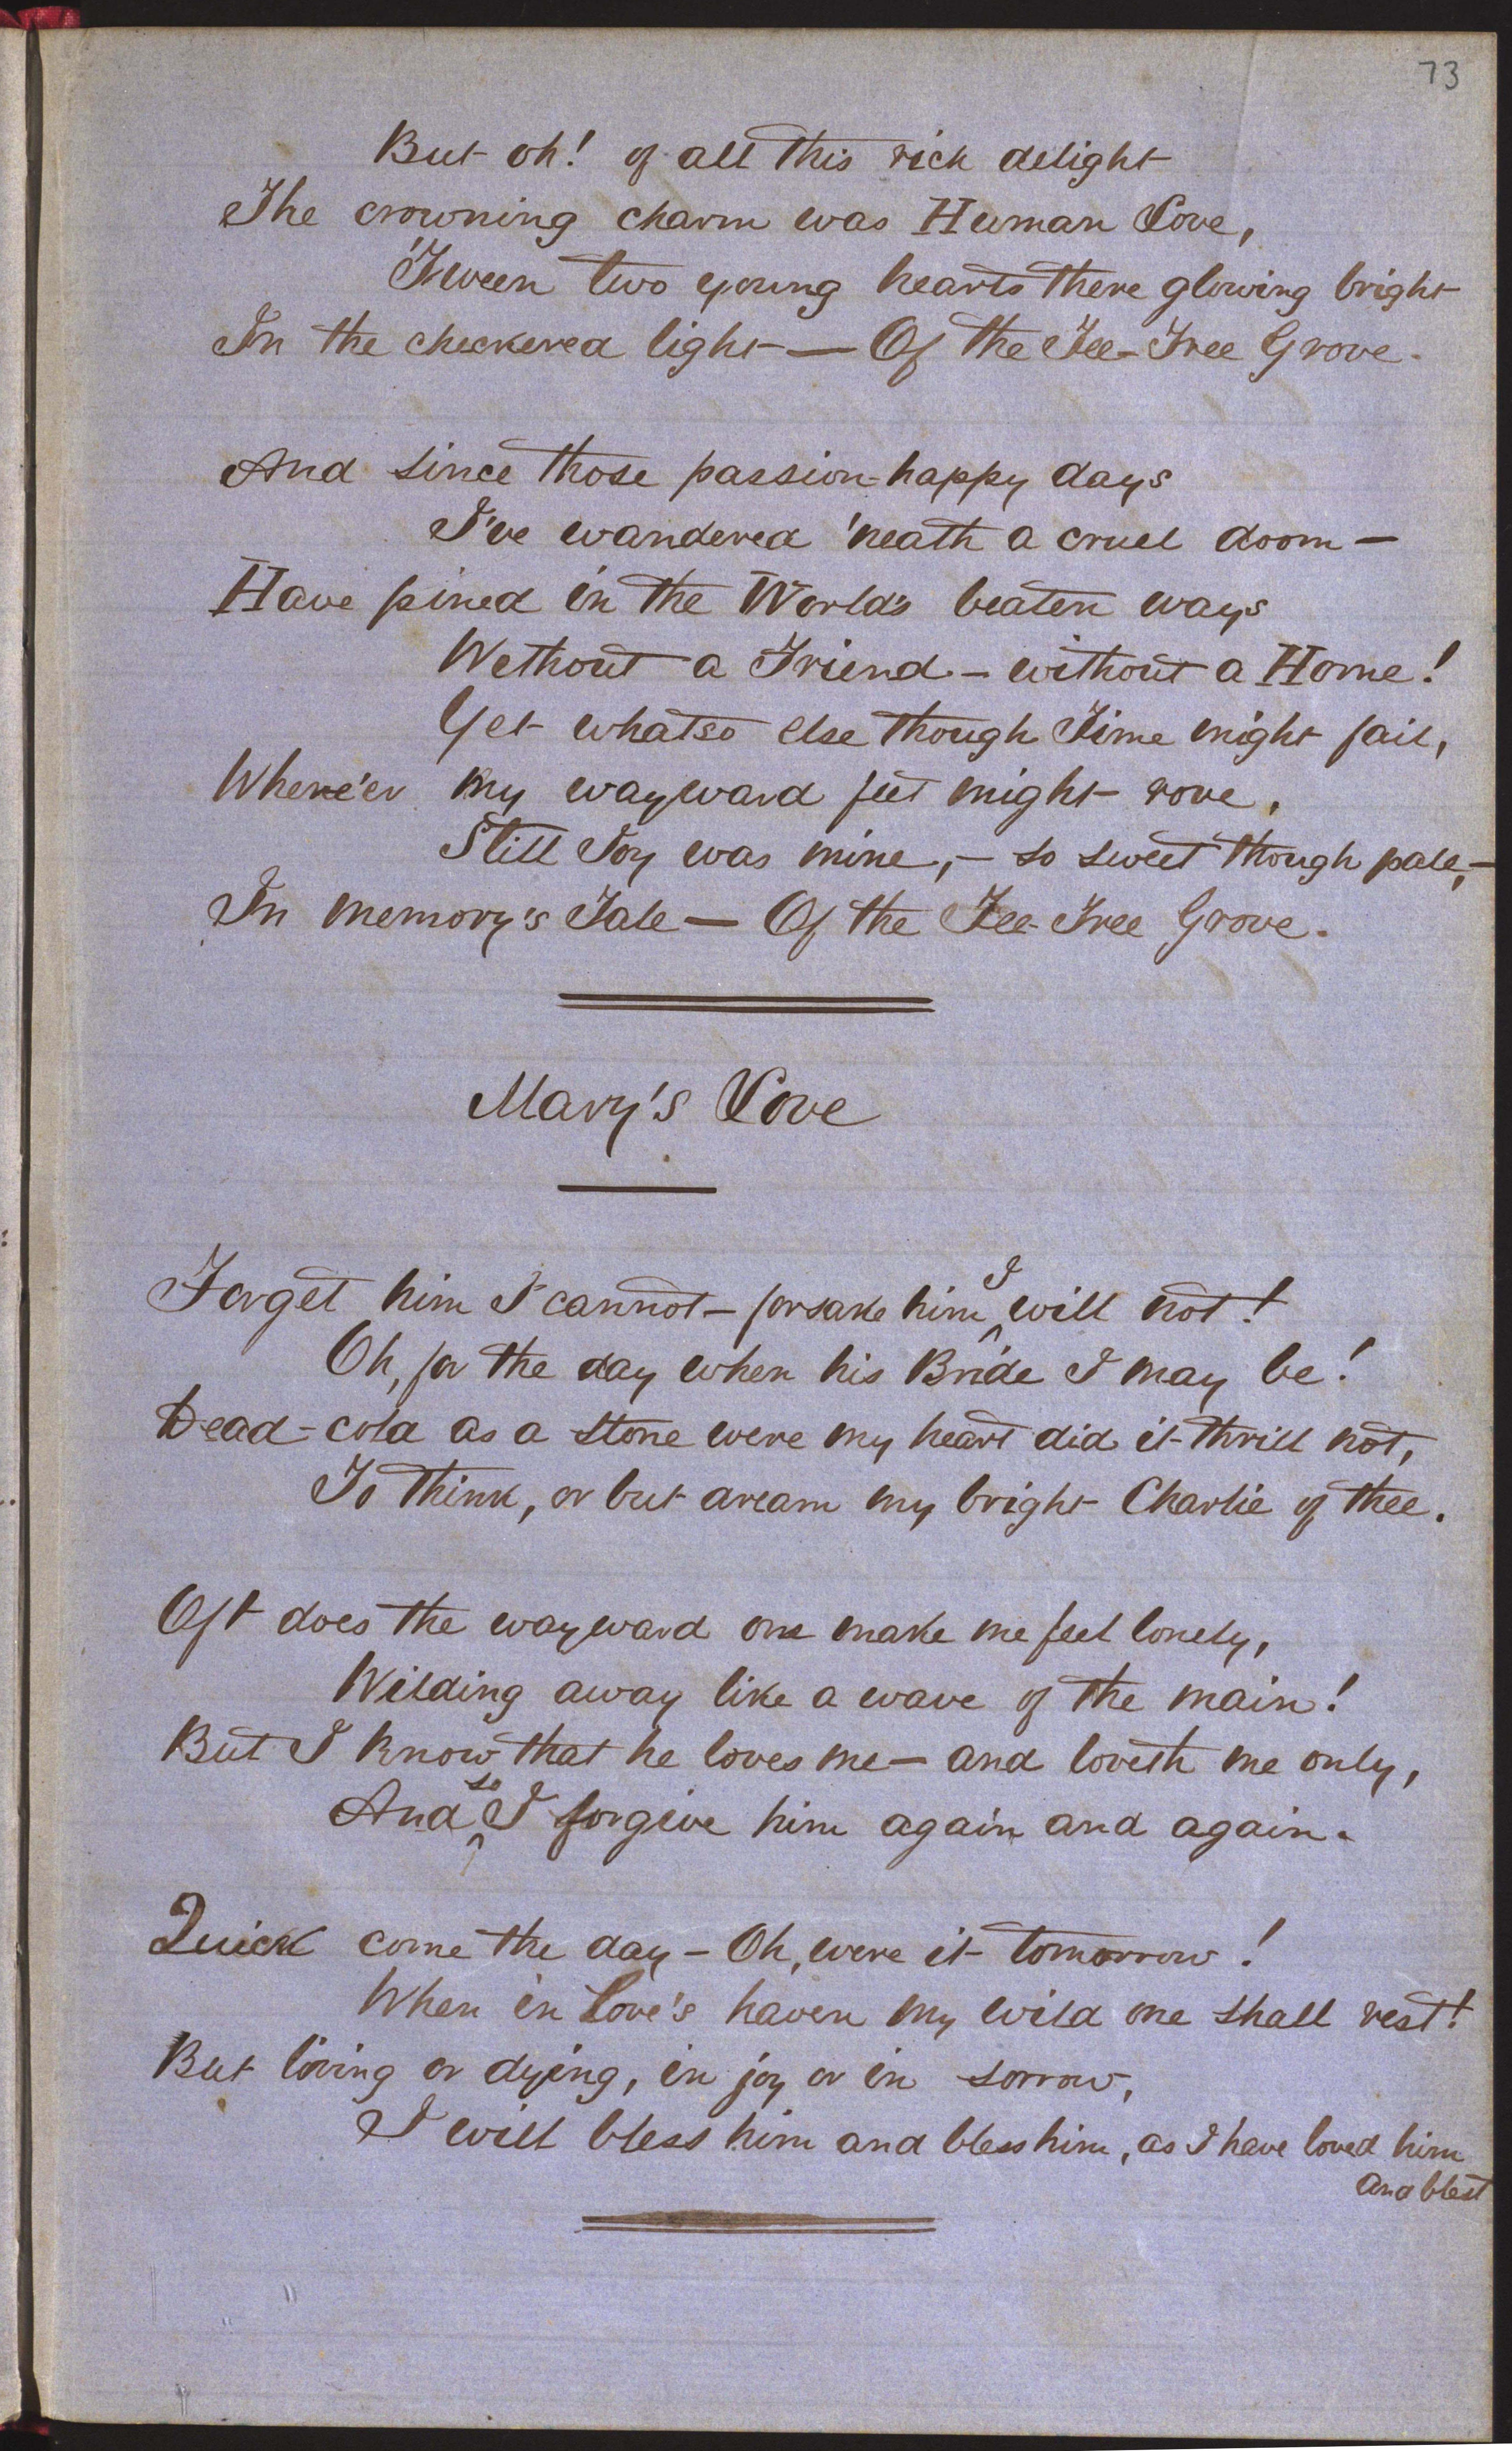 73
But oh! of all this rich delight
The crowning charm was Human Love,
'Tween two young hearts there glowing bright
In the checkered light — Of the Tee-Tree Grove.
And since those passion-happy days
I've wandered 'neath a cruel doom —
Have pined in the World's beaten ways
Without a Friend — without a Home!
Yet whatso else though Time might fail,
Where'er my wayward feet might rove,
Still Joy was mine, — so sweet though pale, —
In memory's Tale — Of the Tee-Tree Grove.
Mary's Love
Forget him I cannot — forsake him I will not!
Oh, for the day when his Bride I may be!
Dead-cold as a stone were my heart did it thrill not,
To think, or but dream my bright Charlie of thee.
Oft does the wayward one make me feel lonely,
Wilding away like a wave of the main!
But I know that he loves me — and loveth me only,
And so I forgive him again and again.
Quick come the day — Oh, were it tomorrow!
When in Love's haven my wild one shall rest!
But living or dying, in joy or in sorrow,
I will bless him and bless him, as I have loved him
and blest